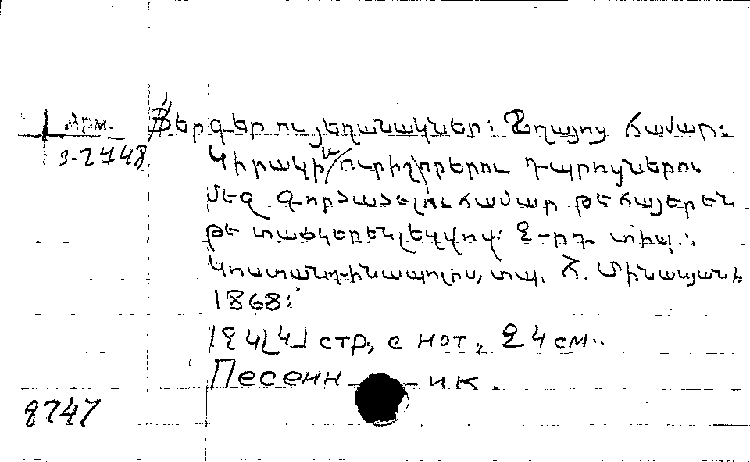 Арм. Երգեր ու յեղանակներ: Տղայոց համար:
3-2748 Կիրակի ուրիշօրերու դպրոցներու
մեջ գործածելու համար թե հայերեն
թե տաճկերեն լեզվով: 2-րդ տիպ.:
Կոստանդինապոլիս, տպ. Հ. Մինասյանի
1868:
стр, с нот, 24 см.
Песенн-ик.
8747